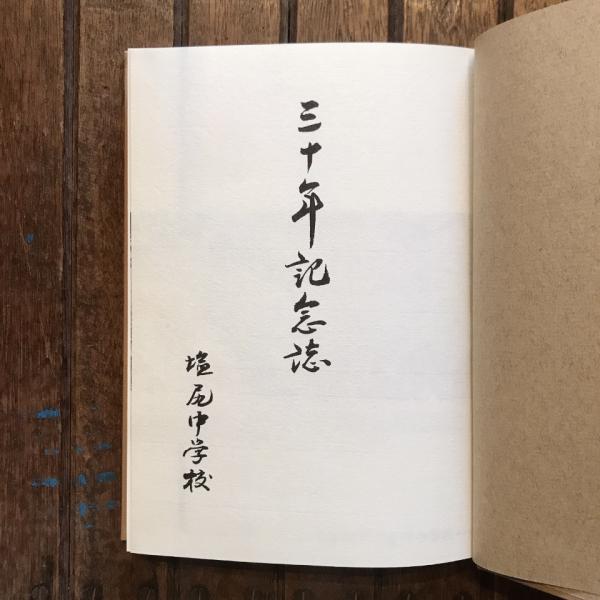 三十年記念誌
塩尻中学校